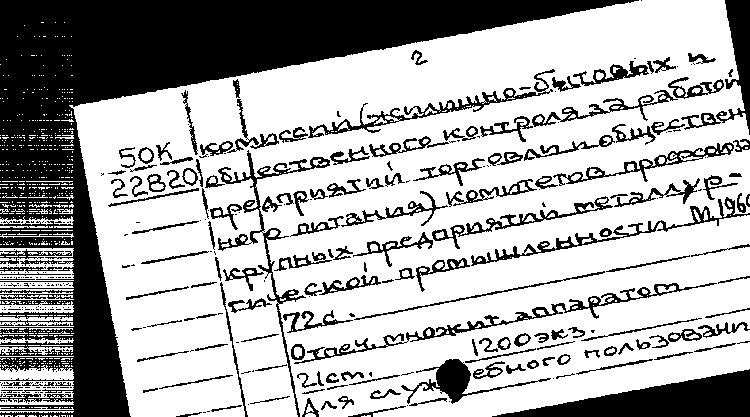 2
50К комиссий (жилищно-бытовых и
22820 общественного контроля за работой
предприятий торговли и обществен
ного питания) комитетов профсоюза
крупных предприятий металлур-
гической промышленности. М, 1960
72 с.
Отпеч. множит. аппаратом.
21 см. 1200 экз.
Для служебного пользования